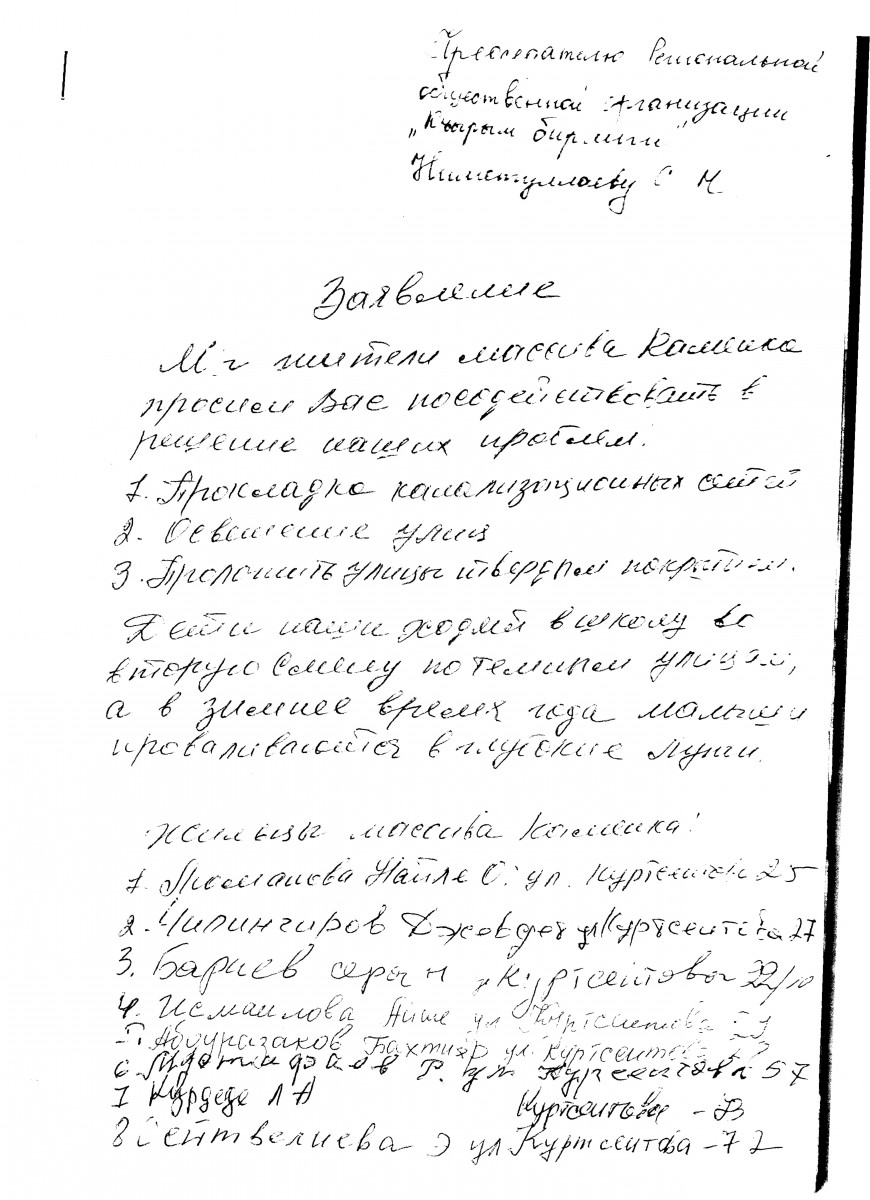 Председателю Региональной
общественной организации
„Къырым бирлиги"
Ниметуллаеву С Н
Заявление
Мы жители массива Каменка
просим Вас посодействовать в
решение наших проблем.
1. Прокладка канализационных сетей
2. Освещение улиц
3. Проложить улицы твердым покрытием.
Дети наши ходят в школу во
вторую смену по темным улицам,
а в зимнее время года малыши
проваливаются в глубокие лужи.
Жильцы массива Каменка:
1. Наиле О. ул. Куртсеитова 25
2. Чилингиров Джевдет ул Куртсеитова 27
3. Бариев Куртсеитова 32/10
4. Исмаилова Айше ул Куртсеитова
Абдуразаков Бахтияр ул Куртсеитова
6. Р. ул Курсеитова 57
7 Л А Куртсеитова
8 Сейтвелиева Э ул Куртсеитова - 72